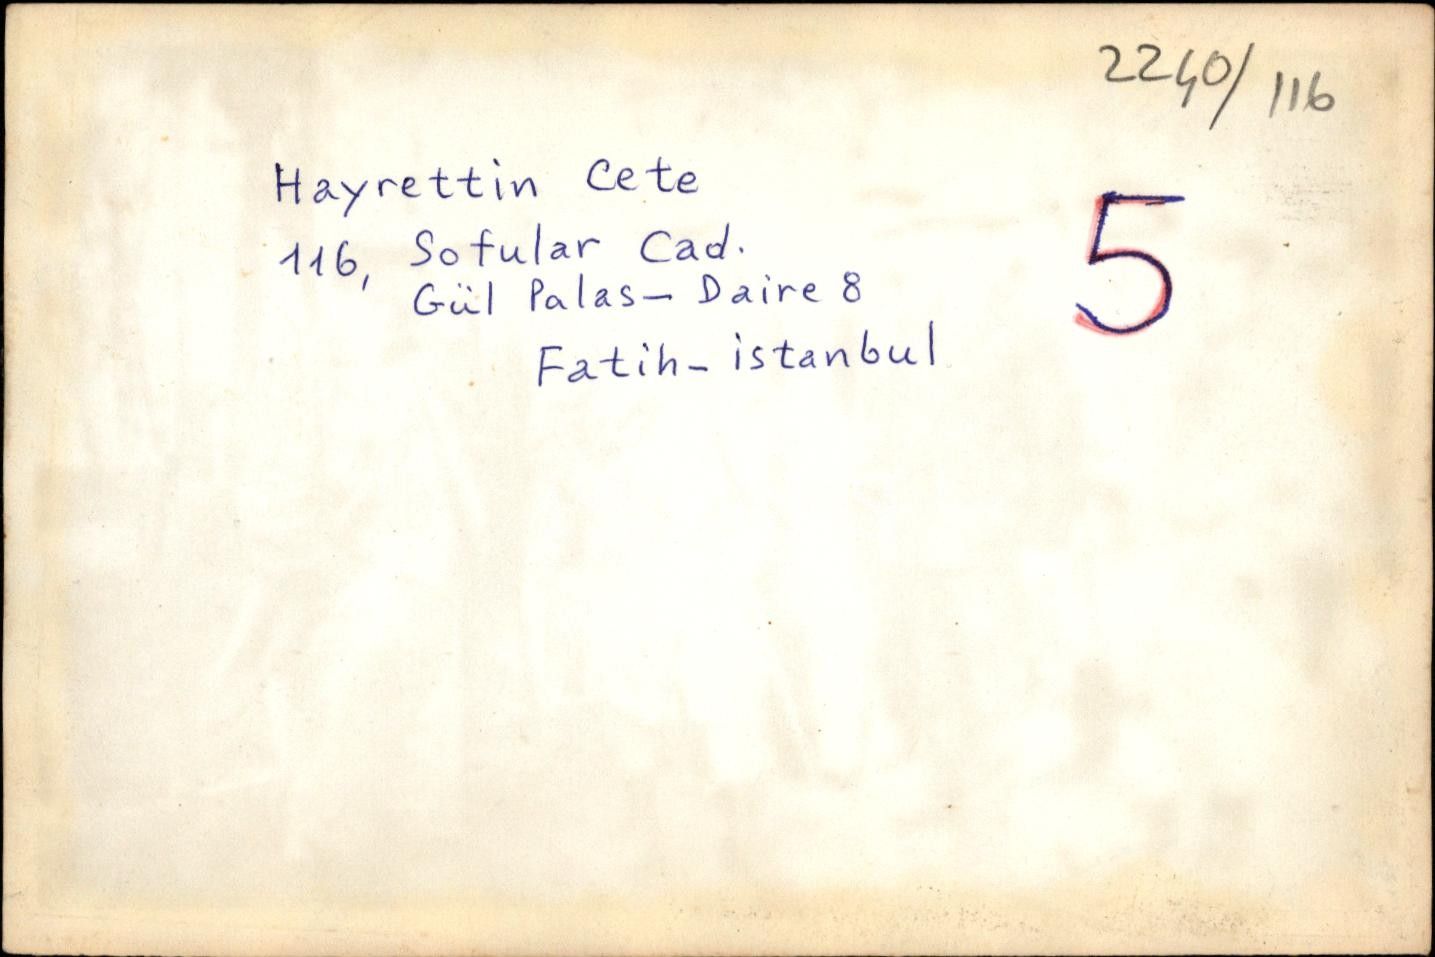 2240/116
Hayrettin Cete
5
116, Sofular Cad.
Gül Palas- Daire 8
Fatih- istanbul